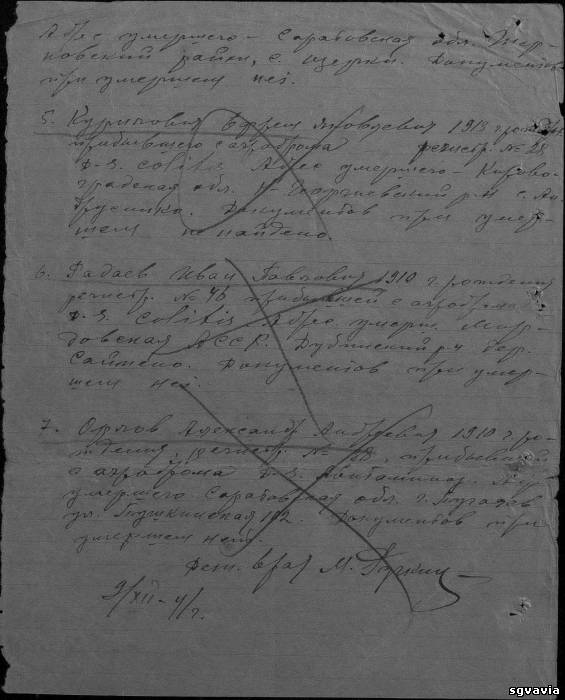 Адрес умершего – Саратовская обл. Тер-
новский район, с. Щерки. Документов
при умершем нет.
5. Курипович Ефрем Яковлевич 1918 г рождения
прибывшего с аэродрома регистр. № 28
D-s. colitis Адрес умершего – Кирово-
градская обл. Н-Георгиевский р-н с. Ан-
друсинко. Документов при умер-
шем не найдено.
6. Фадаев Иван Павлович 1910 г. рождения
регистр. № 46 прибывшей с аэродрома
D-s. colitis Адрес умерш. Мор-
довская АССР. Дубинский р-н дер.
Сайнено. Документов при умер-
шем нет.
7. Орлов Александр Андреевич 1910 г ро-
ждения, регистр. № прибывший
с аэродрома D-s.
умершего Саратовская обл. г. Пугачев
ул. Пушкинская 192. Документов при
умершем нет.
врач М.
9/XII-41 г.
sgvavia